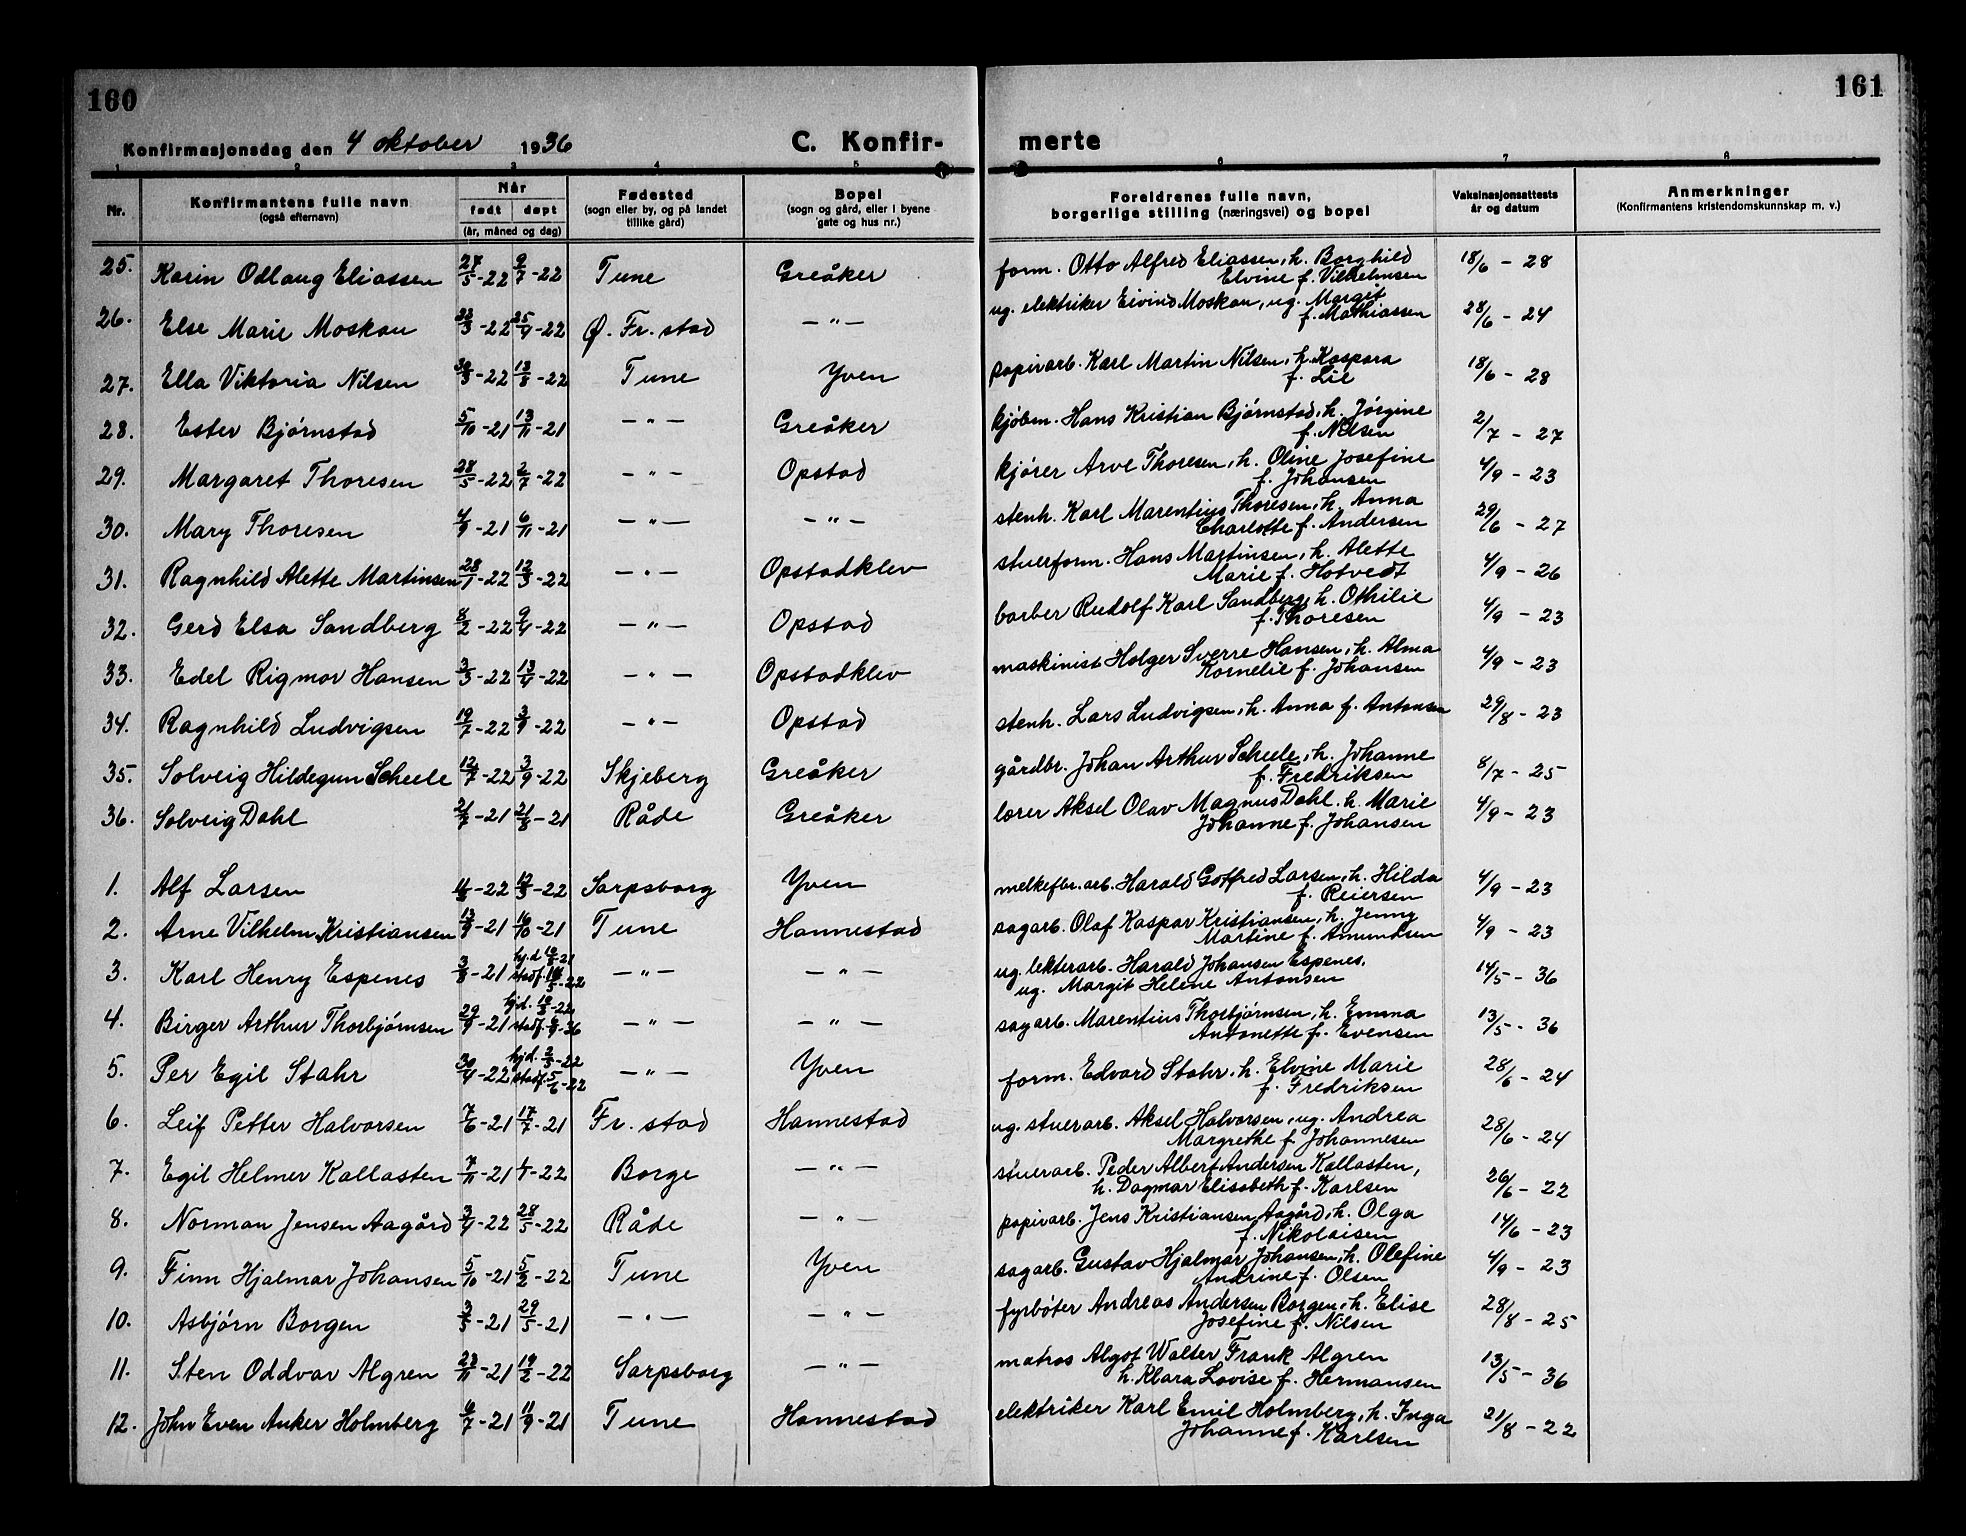 160
161
Konfirmasjonsdag den 4 oktober 1936
C. Konfir-
merte
1 2 3 4 5 6 7 8
Nr.
Konfirmantens fulle navn
(også efternavn)
Når
født
døpt
(år, måned og dag)
Fødested
(sogn eller by, og på landet
tillike gård)
Bopel
(sogn og gård, eller i byene
gate og hus nr.)
Foreldrenes fulle navn,
borgerlige stilling (næringsvei) og bopel
Vaksinasjonsattests
år og datum
Anmerkninger
(Konfirmantens kristendomskunnskap m. v.)
25. Karin Odlaug Eliassen 27/5-22 9/7-22 Tune Greåker form. Otto Alfred Eliassen, h. Borghild
Elvine f. Vilhelmsen 18/6 - 28
26. Else Marie Moskau 22/3-22 25/4-22 Ø. Fr. stad — " — ug. elektriker Eivind Moskau, ug. Margit
f. Mathiassen 28/6 - 24
27. Ella Viktoria Nilsen 30/3-22 13/8-22 Tune Yven papirarb. Karl Martin Nilsen, h. Kaspara
f. Lie 18/6 - 28
28. Ester Bjørnstad 5/10-21 13/11-21 — " — Greåker kjøbm. Hans Kristian Bjørnstad, h. Jørgine
f. Nilsen 2/7 - 27
29. Margaret Thoresen 28/5-22 2/7-22 — " — Opstad kjører Arve Thoresen, h. Oline Josefine
f. Johansen 4/9 - 23
30. Mary Thoresen 4/9-21 6/11-21 — " — — " — stenh. Karl Marentius Thoresen, h. Anna
Charlotte f. Andersen 29/6 - 27
31. Ragnhild Alette Martinsen 28/1-22 12/3-22 — " — Opstadklev stuerform. Hans Martinsen, h. Alette
Marie f. Hotvedt 4/9 - 26
32. Gerd Elsa Sandberg 8/2-22 9/4-22 — " — Opstad barber Rudolf Karl Sandberg, h. Othilie
f. Thoresen 4/9 - 23
33. Edel Rigmor Hansen 3/3-22 13/4-22 — " — Opstadklev maskinist Holger Sverre Hansen, h. Alma
Kornelie f. Johansen 4/9 - 23
34. Ragnhild Ludvigsen 19/7-22 3/9-22 — " — Opstad stenh. Lars Ludvigsen, h. Anna f. Antonsen 29/8 - 23
35. Solveig Hildegunn Scheele 12/7-22 3/9-22 Skjeberg Greåker gårdbr. Johan Arthur Scheele, h. Johanne
f. Fredriksen 8/7 - 25
36. Solveig Dahl 2/7-21 21/8-21 Råde Greåker lærer Aksel Olav Magnus Dahl, h. Marie
Johanne f. Johansen 4/9 - 23
1. Alf Larsen -22 12/3-22 Sarpsborg Yven melkefbr.arb. Harald Gotfred Larsen, h. Hilda
f. Reiersen 4/9 - 23
2. Arne Vilhelm Kristiansen 13/9-21 16/10-21 Tune Hannestad sagarb. Olaf Kaspar Kristiansen, h. Jenny
Martine f. Amundsen 4/9 - 23
3. Karl Henry Espenes 3/8-21 hj.d -21
stadf. -22 — " — — " — ug. lekterarb. Harald Johansen Espenes,
ug. Margit Helene Antonsen 14/5 - 36
4. Birger Arthur Thorbjørnsen 29/9-21 hj.d. -22
stadf. -36 — " — — " — sagarb. Marentius Thorbjørnsen, h. Emma
Antonette f. Evensen 13/5 - 36
5. Per Egil Stahr 30/4-22 hj.d. -22
stadf. 5/6-22 — " — Yven form. Edvard Stahr, h. Elvine Marie
f. Fredriksen 28/6 - 24
6. Leif Petter Halvorsen 7/6-21 17/7-21 Fr. stad Hannestad ug. stuerarb. Aksel Halvorsen, ug. Andrea
Margrethe f. Johannesen 28/6 - 24
7. Egil Helmer Kallasten 7/11-21 1/1-22 Borge — " — stuerarb. Peder Albert Andersen Kallasten,
h. Dagmar Elisabeth f. Karlsen 26/6 - 22
8. Norman Jensen Aagård 3/4-22 28/5-22 Råde — " — papirarb. Jens Kristiansen Aagård, h. Olga
f. Nikolaisen 14/6 - 23
9. Finn Hjalmar Johansen 5/10-21 5/2-22 Tune Yven sagarb. Gustav Hjalmar Johansen, h. Olefine
Andrine f. Olsen 4/9 - 23
10. Asbjørn Borgen 3/3-21 29/5-21 — " — — " — fyrbøter Andreas Andersen Borgen, h. Elise
Josefine f. Nilsen 28/8 - 25
11. Sten Oddvar Algren 23/11-21 19/2-22 Sarpsborg — " — matros Algot Walter Frank Algren
h. Klara Lovise f. Hermansen 13/5 - 36
12. John Even Anker Holmberg 6/7-21 11/9-21 Tune Hannestad elektriker Karl Emil Holmberg, h. Inga
Johanne f. Karlsen 21/8 - 22